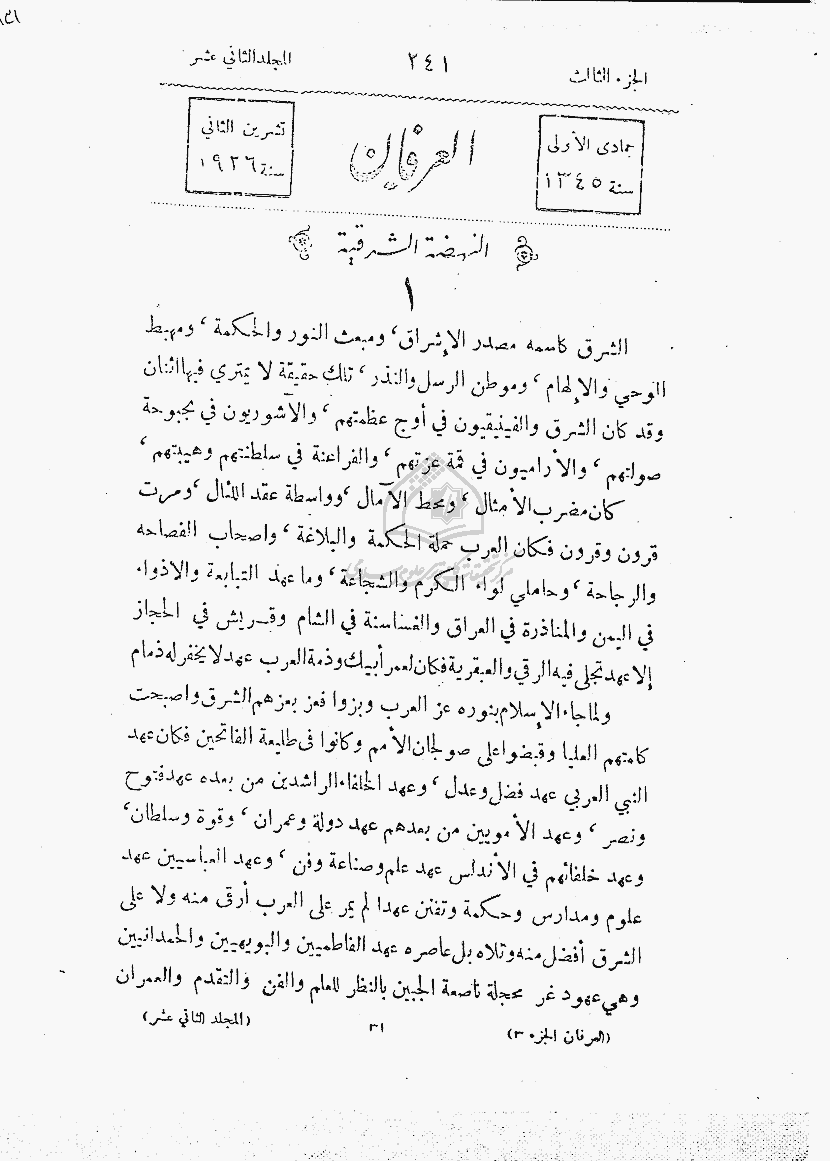 الجزء الثالث
٢٤١
المجلد الثاني عشر
جمادى الأولى
سنة ١٣٤٥
العرفان
تشرين الثاني
سنة ١٩٢٦
النهضة الشرقية
١
الشرق كاسمه مصدر الإشراق، ومبعث النور والحكمة، ومهبط
الوحي والإلهام، وموطن الرسل والنذر، تلك حقيقة لا يمتري فيها اثنان
وقد كان الشرق والفينيقيون في أوج عظمتهم، والآشوريون في بحبوحة
صولتهم، والأراميون في قمة عزتهم، والفراعنة في سلطنتهم وهيبتهم،
كان مضرب الأمثال، ومحط الآمال، وواسطة عقد اللئال، ومرت
قرون وقرون فكان العرب حملة الحكمة والبلاغة، واصحاب الفصاحه
والرجاحة، وحاملي لواء الكرم والشجاعة، وما عهد التبابعة والاذواء
في اليمن والمناذرة في العراق والغساسنة في الشام وقريش في الحجاز
إلا عهد تجلى فيه الرقي والعبقرية فكان لعمر أبيك وذمة العرب عهد لا يخفر له ذمام
ولما جاء الإسلام بنوره عز العرب وبزوا فعز بعزهم الشرق واصبحت
كلمتهم العليا وقبضوا على صولجان الأمم وكانوا في طليعة الفاتحين فكان عهد
النبي العربي عهد فضل وعدل، وعهد الخلفاء الراشدين من بعده عهد فتوح
ونصر، وعهد الأمويين من بعدهم عهد دولة وعمران، وقوة وسلطان،
وعهد خلفائهم في الأندلس عهد علم وصناعة وفن، وعهد العباسيين عهد
علوم ومدارس وحكمة وتفنن عهدا لم يمر على العرب أرقى منه ولا على
الشرق أفضل منه وتلاه بل عاصره عهد الفاطميين والبويهيين والحمدانيين
وهي عهود غر محجلة ناصعة الجبين بالنظر للعلم والفن والتقدم والعمران
(العرفان الجزء ٣)
٣١
(المجلد الثاني عشر)